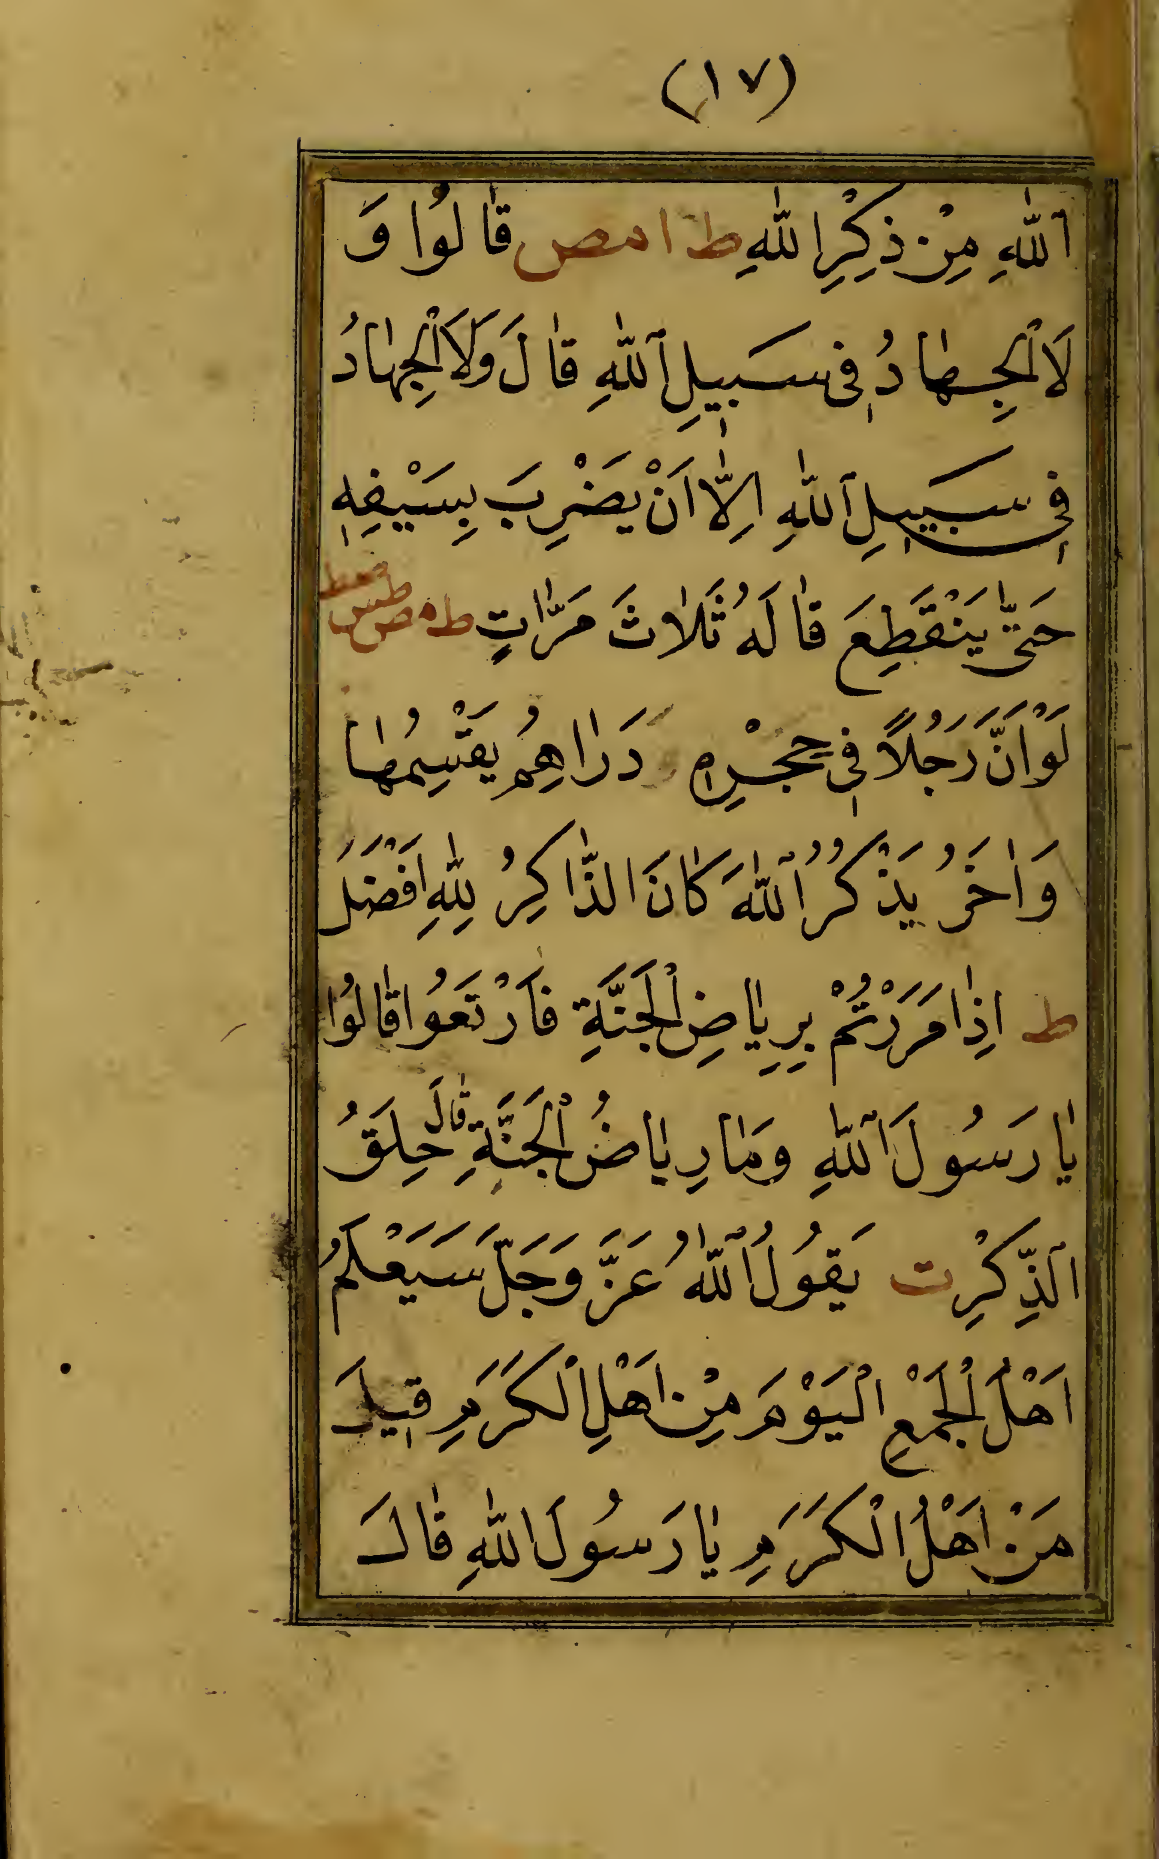 (١٧)
اللّٰهِ مِنْ ذِكْرِ اللّٰهِ ط ا مص قَالُوا وَ
لَا الْجِهَادُ فِي سَبِيلِ اللّٰهِ قَالَ وَلَا الْجِهَادُ
فِي سَبِيلِ اللّٰهِ اِلَّا اَنْ يَضْرِبَ بِسَيْفِهٖ
حَتّٰى يَنْقَطِعَ قَالَهُ ثَلَاثَ مَرَّاتٍ ط مص طس صط
لَوْ اَنَّ رَجُلًا فِي حِجْرِهٖ دَرَاهِمُ يَقْسِمُهَا
وَاٰخَرُ يَذْكُرُ اللّٰهَ كَانَ الذَّاكِرُ لِلّٰهِ اَفْضَلَ
ط اِذَا مَرَرْتُمْ بِرِيَاضِ الْجَنَّةِ فَارْتَعُوا قَالُوا
يَا رَسُولَ اللّٰهِ وَمَا رِيَاضُ الْجَنَّةِ قَالَ حِلَقُ
الذِّكْرِ ت يَقُولُ اللّٰهُ عَزَّ وَجَلَّ سَيَعْلَمُ
اَهْلُ الْجَمْعِ الْيَوْمَ مِنْ اَهْلِ الْكَرَمِ قِيلَ
مَنْ اَهْلُ الْكَرَمِ يَا رَسُولَ اللّٰهِ قَالَ